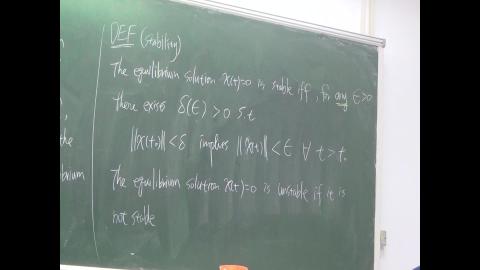 DEF (stability)
The equilibrium solution x(t)=0 is stable iff, for any ε>0
There exists δ(ε)>0 s.t
||x(t₀)||<δ implies ||x(t)||<ε ∀ t>t₀
The equilibrium solution x(t)=0 is unstable if it is
not stable
the
brium